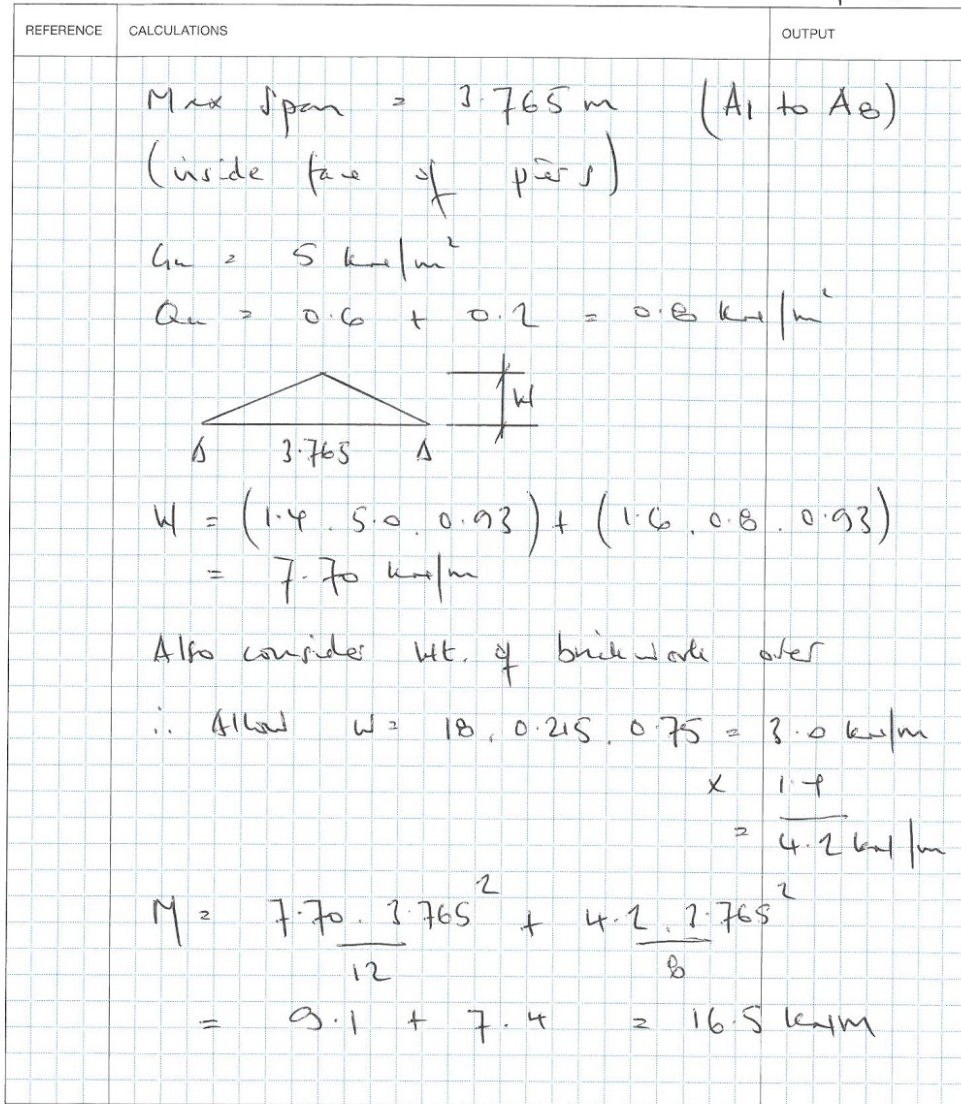 REFERENCE CALCULATIONS OUTPUT
Max Span = 3.765 m (A1 to A8)
(inside face of piers)
Gk = 5 kN/m²
Qk = 0.6 + 0.2 = 0.8 kN/m²
W
3.765
W = (1.4 . 5.0 . 0.93) + (1.6 . 0.8 . 0.93)
= 7.70 kN/m
Also consider Wt. of brickwork over
∴ Allow W = 18 . 0.215 . 0.75 = 3.0 kN/m
x 1.4
= 4.2 kN/m
M = 7.70 . 3.765² + 4.2 . 3.765²
12 8
= 9.1 + 7.4 = 16.5 kNm